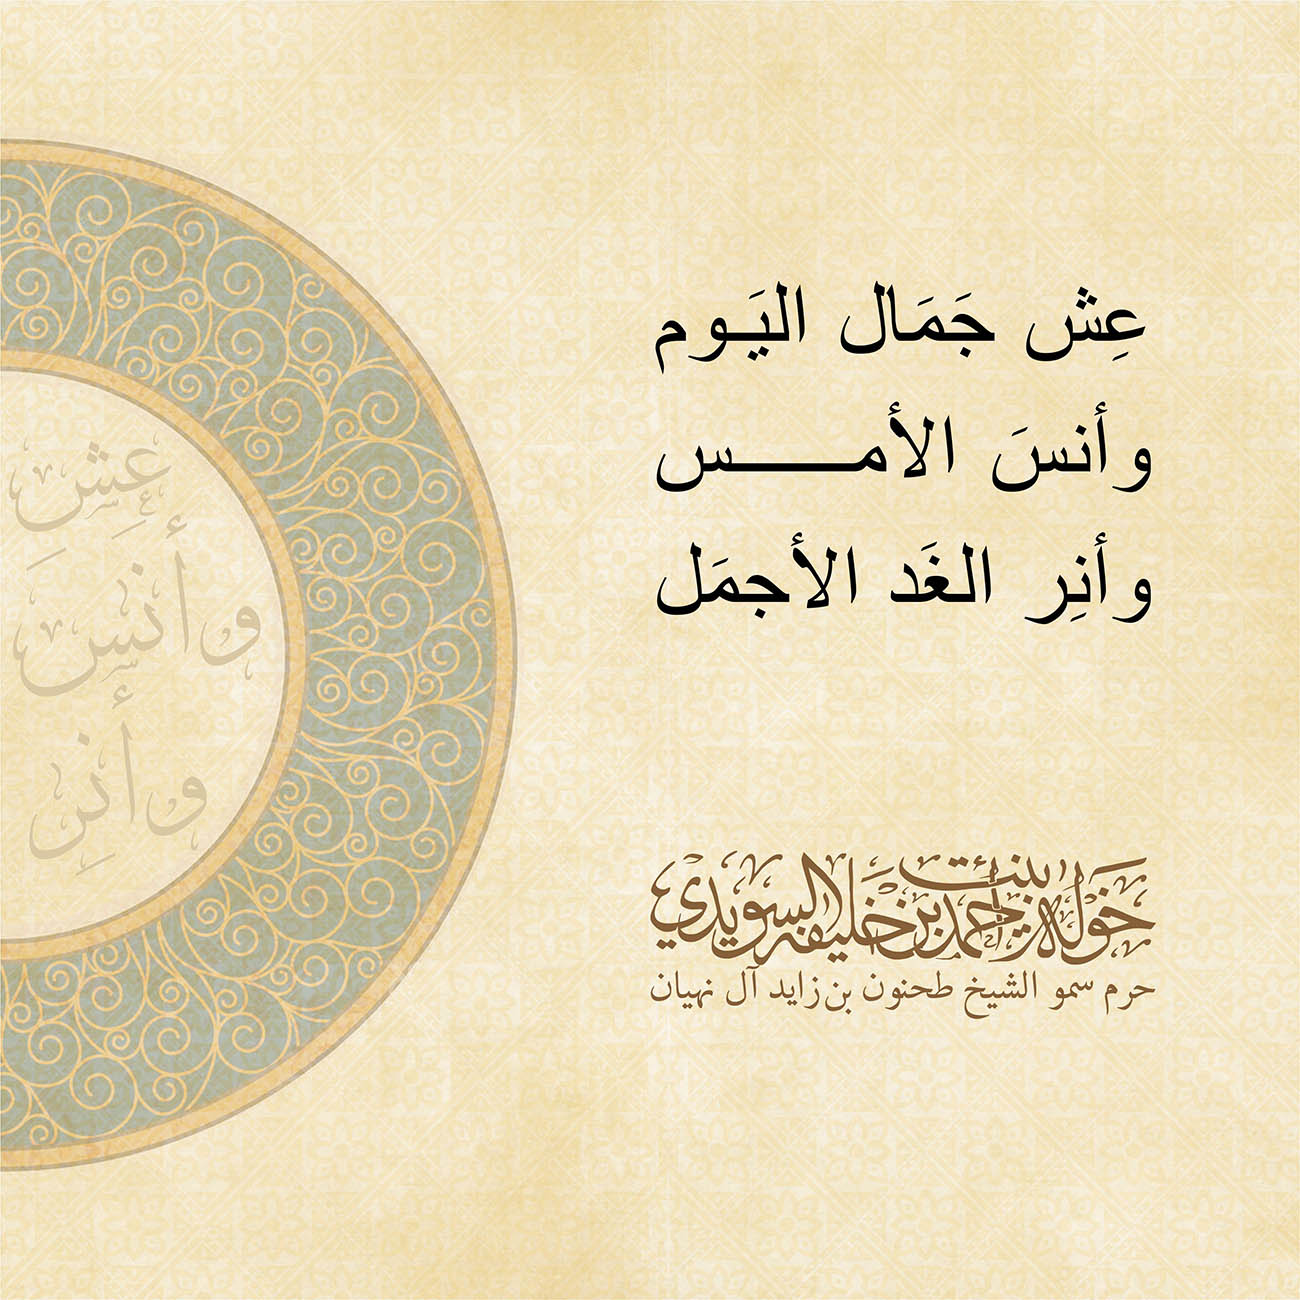 عِش جَمَال اليَوم
وأنسَ الأمـــــس
وأنِر الغَد الأجمَل
عِش
وأنسَ
وأنِر
خولة بنت أحمد بن خليفة السويدي
حرم سمو الشيخ طحنون بن زايد آل نهيان